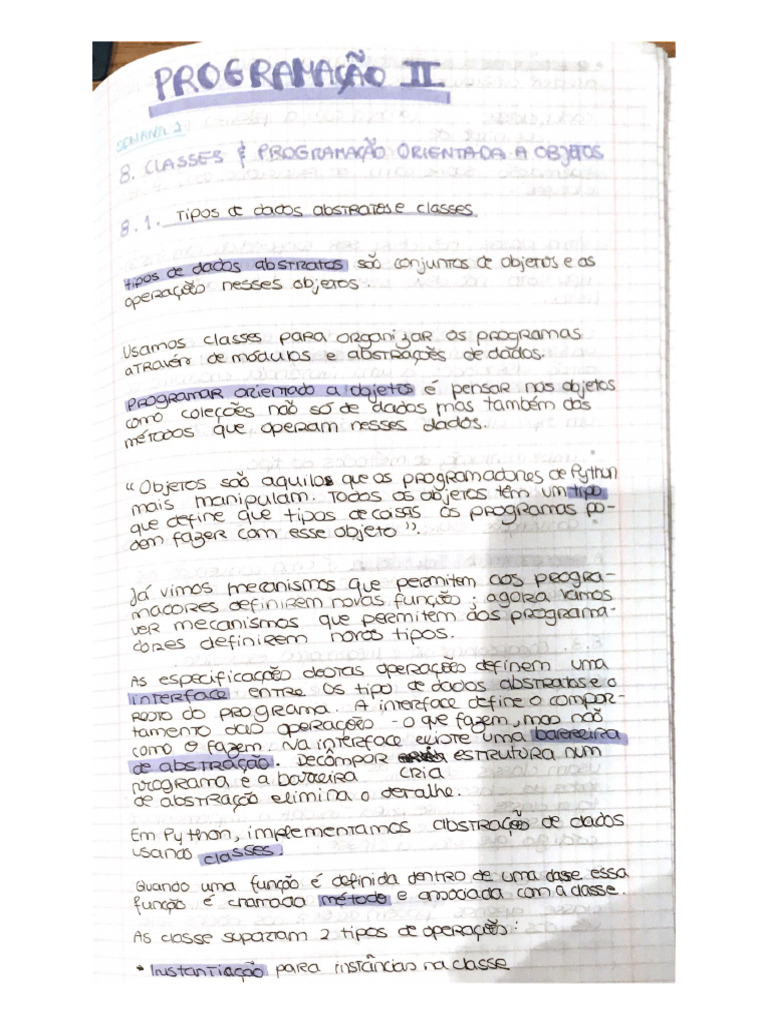 PROGRAMAÇÃO II
SEMANA 2
8. CLASSES & PROGRAMAÇÃO ORIENTADA A OBJETOS
8.1. Tipos de dados abstratos e classes
tipos de dados abstratos são conjuntos de objetos e as
operação nesses objetos.
Usamos classes para organizar os programas
através de módulos e abstrações de dados.
Programar orientado a objetos é pensar nos objetos
como coleções não só de dados mas também dos
métodos que operam nesses dados.
"Objetos são aquilos que os programadores de Python
mais manipulam. Todos os objetos têm um tipo
que define que tipos de coisas os programas po-
dem fazer com esse objeto".
Já vimos mecanismos que permitem aos progra-
madores definirem novas função; agora vamos
ver mecanismos que permitem aos programa-
dores definirem novos tipos.
As especificação destas operação definem uma
interface entre os tipo de dados abstratos e o
resto do programa. A interface define o compor-
tamento das operações - o que fazem, mas não
como o fazem. Na interface existe uma barreira
de abstração. Decômpor estrutura num
programa e a barreira cria
de abstração elimina o detalhe.
Em Python, implementamos abstração de dados
usando classes.
Quando uma função é definida dentro de uma classe essa
função é chamada método e associada com a classe.
As classe suportam 2 tipos de operação:
• Instantiação para instâncias na classe